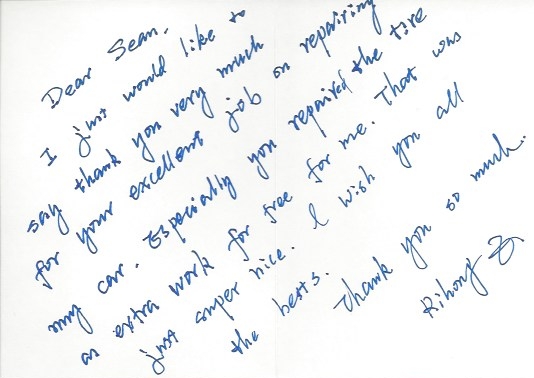 Dear Sean,
I just would like to
say thank you very much
for your excellent job on repairing
my car. Especially you repaired the tire
as extra work for free for me. That was
just super nice. I wish you all
the bests.
Thank you so much.
Kihong